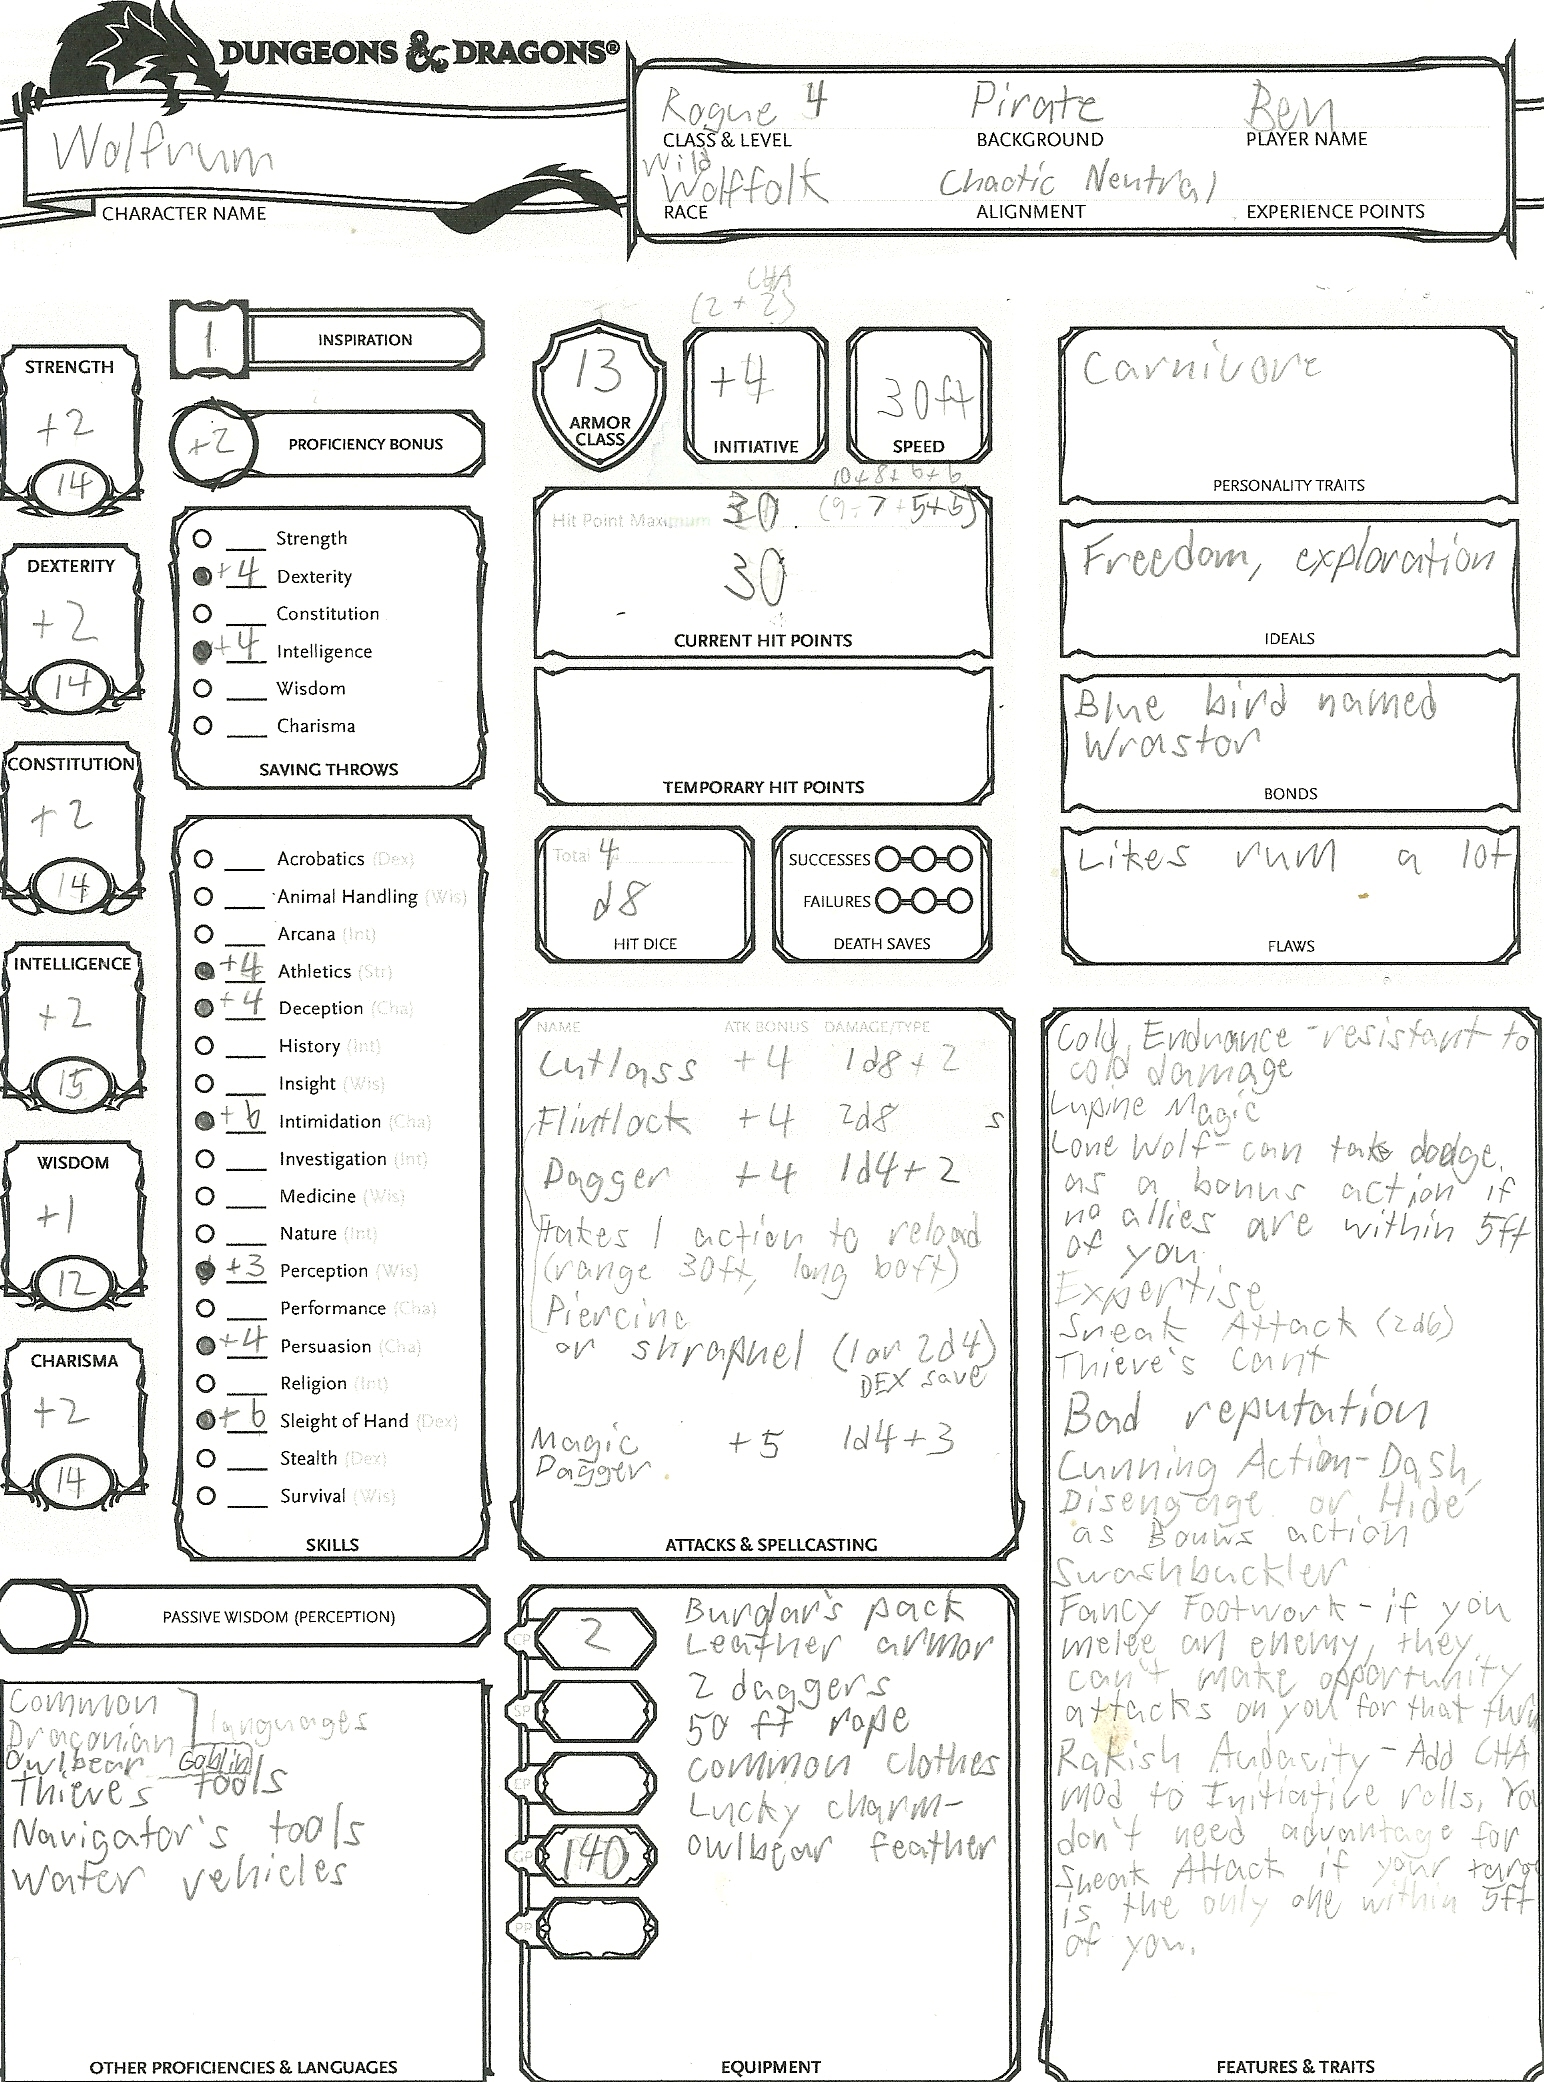 DUNGEONS & DRAGONS®
Wolfrum
CHARACTER NAME
Rogue 4
Pirate
Ben
CLASS & LEVEL
BACKGROUND
PLAYER NAME
Wild
Wolffolk
Chaotic Neutral
RACE
ALIGNMENT
EXPERIENCE POINTS
STRENGTH
+2
14
DEXTERITY
+2
14
CONSTITUTION
+2
14
INTELLIGENCE
+2
15
WISDOM
+1
12
CHARISMA
+2
14
1
INSPIRATION
+2
PROFICIENCY BONUS
Strength
+4 Dexterity
Constitution
+4 Intelligence
Wisdom
Charisma
SAVING THROWS
Acrobatics (Dex)
Animal Handling (Wis)
Arcana (Int)
+4 Athletics (Str)
+4 Deception (Cha)
History (Int)
Insight (Wis)
+6 Intimidation (Cha)
Investigation (Int)
Medicine (Wis)
Nature (Int)
+3 Perception (Wis)
Performance (Cha)
+4 Persuasion (Cha)
Religion (Int)
+6 Sleight of Hand (Dex)
Stealth (Dex)
Survival (Wis)
SKILLS
PASSIVE WISDOM (PERCEPTION)
Common
Draconian
languages
Owlbear Goblin
Thieves tools
Navigator's tools
Water vehicles
OTHER PROFICIENCIES & LANGUAGES
CHA
(2 + 2)
13
ARMOR
CLASS
+4
INITIATIVE
30ft
SPEED
10+8+6+6
Hit Point Maximum 30 (9+7+5+5)
30
CURRENT HIT POINTS
TEMPORARY HIT POINTS
Total 4
d8
HIT DICE
SUCCESSES
FAILURES
DEATH SAVES
NAME ATK BONUS DAMAGE/TYPE
Cutlass +4 1d8+2
Flintlock +4 2d8 s
Dagger +4 1d4+2
takes 1 action to reload
(range 30ft, long 60ft)
Piercing
or shrapnel (1 or 2d4)
DEX save
Magic +5 1d4+3
Dagger
ATTACKS & SPELLCASTING
CP 2
SP
EP
GP 140
PP
Burglar's pack
Leather armor
2 daggers
50 ft rope
common clothes
Lucky charm-
owlbear feather
EQUIPMENT
Carnivore
PERSONALITY TRAITS
Freedom, exploration
IDEALS
Blue bird named
Wrastor
BONDS
Likes rum a lot
FLAWS
Cold Endurance - resistant to
cold damage
Lupine Magic
Lone Wolf- can take dodge
as a bonus action if
no allies are within 5ft
of you
Expertise
Sneak Attack (2d6)
Thieve's Cant
Bad reputation
Cunning Action- Dash,
Disengage or Hide
as Bonus action
Swashbuckler
Fancy Footwork - if you
melee an enemy, they
can't make opportunity
attacks on you for that
Rakish Audacity - Add CHA
mod to Initiative rolls, You
don't need advantage for
Sneak Attack if your
is the only one within 5ft
of you.
FEATURES & TRAITS